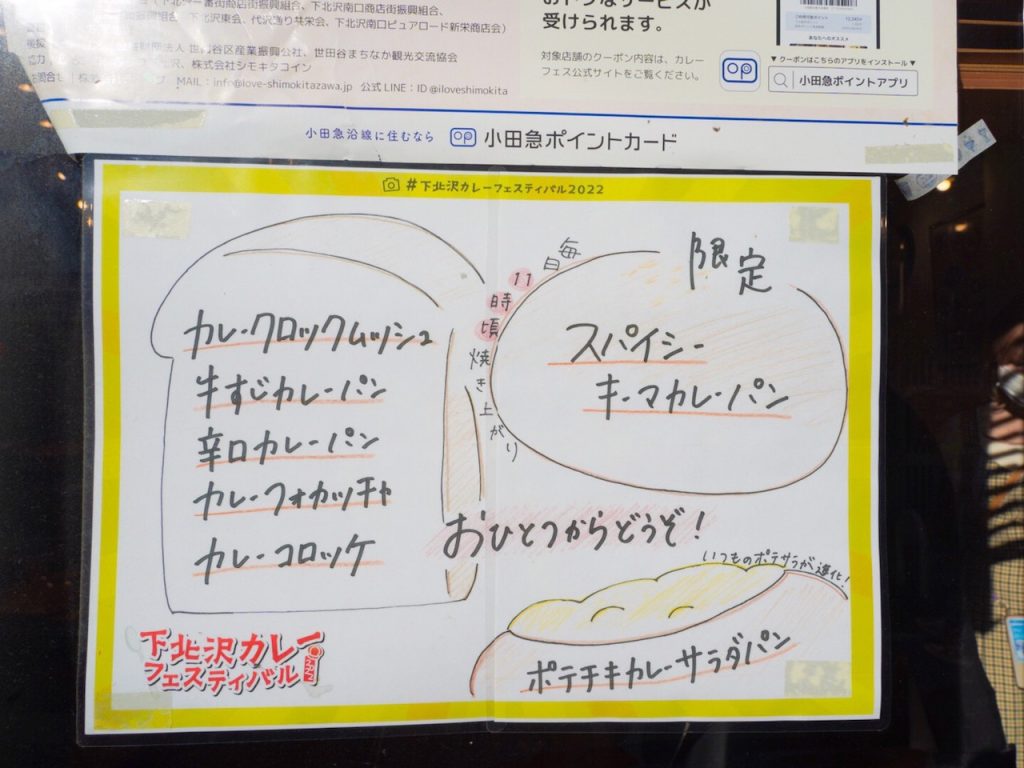 下北沢一番街商店街振興組合、下北沢南口商店街振興組合、
下北沢東会、代沢通り共栄会、下北沢南口ピュアロード新栄商店会）
世田谷区産業振興公社、世田谷まちなか観光交流協会
株式会社シモキタコイン
MAIL：info@love-shimokitazawa.jp 公式LINE：ID @iloveshimokita
受けられます。
対象店舗のクーポン内容は、カレー
フェス公式サイトをご覧ください。
▼クーポンはこちらのアプリをインストール▼
小田急ポイントアプリ
小田急沿線に住むなら OP 小田急ポイントカード
#下北沢カレーフェスティバル2022
カレークロックムッシュ
牛すじカレーパン
辛口カレーパン
カレーフォカッチャ
カレーコロッケ
毎日11時頃焼き上がり
限定
スパイシー
キーマカレーパン
おひとつからどうぞ！
いつものポテサラが進化！
ポテチキカレーサラダパン
下北沢カレー
フェスティバル